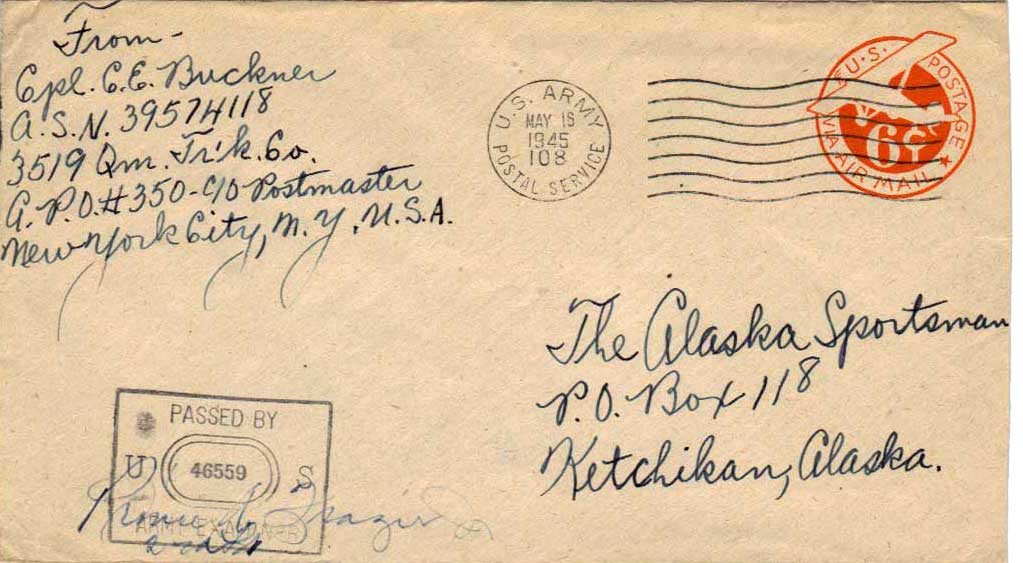 From-
Cpl. C.E. Buckner
A.S.N. 39574118
3519 Qm. Tr'k. Co.
A.P.O.#350-C/O Postmaster
New York City, N.Y., U.S.A.
U.S. ARMY
MAY 15
1945
108
POSTAL SERVICE
U.S. POSTAGE
6¢
VIA AIR MAIL
The Alaska Sportsman
P.O. Box 118
Ketchikan, Alaska.
PASSED BY
U 46559 S
ARMY EXAMINER